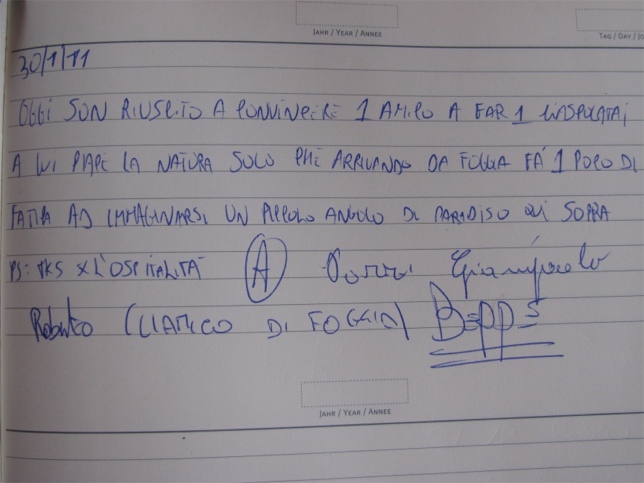 JAHR / YEAR / ANNEE
TAG / DAY / JO
30/1/11
OGGI SON RIUSCITO A CONVINCERE 1 AMICO A FAR 1 CIASPOLATA;
A LUI PIACE LA NATURA SOLO CHE ARRIVANDO DA FOGGIA FÁ 1 POCO DI
FATICA AD IMMAGINARSI UN PICCOLO ANGOLO DI PARADISO QUI SOPRA
PS: TKS X L'OSPITALITÀ A Giampaolo
Roberto (L'AMICO DI FOGGIA)
JAHR / YEAR / ANNEE